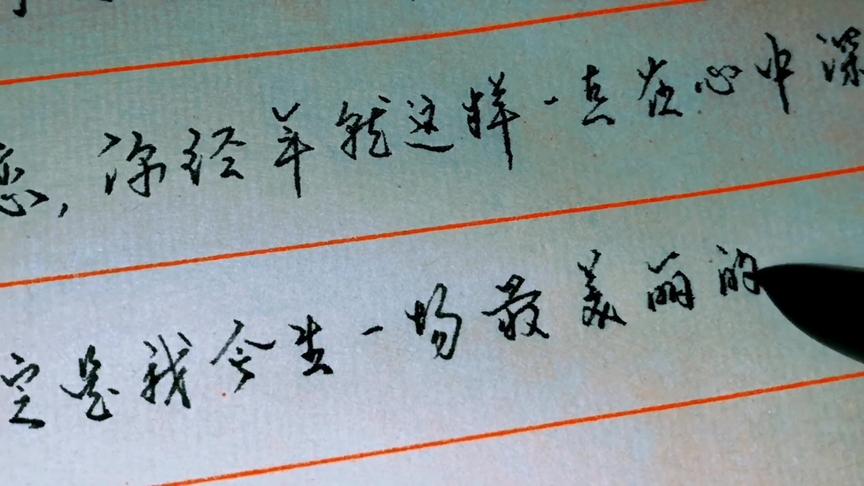 恋,你经年就这样一直在心中深
定是我今生一场最美丽的